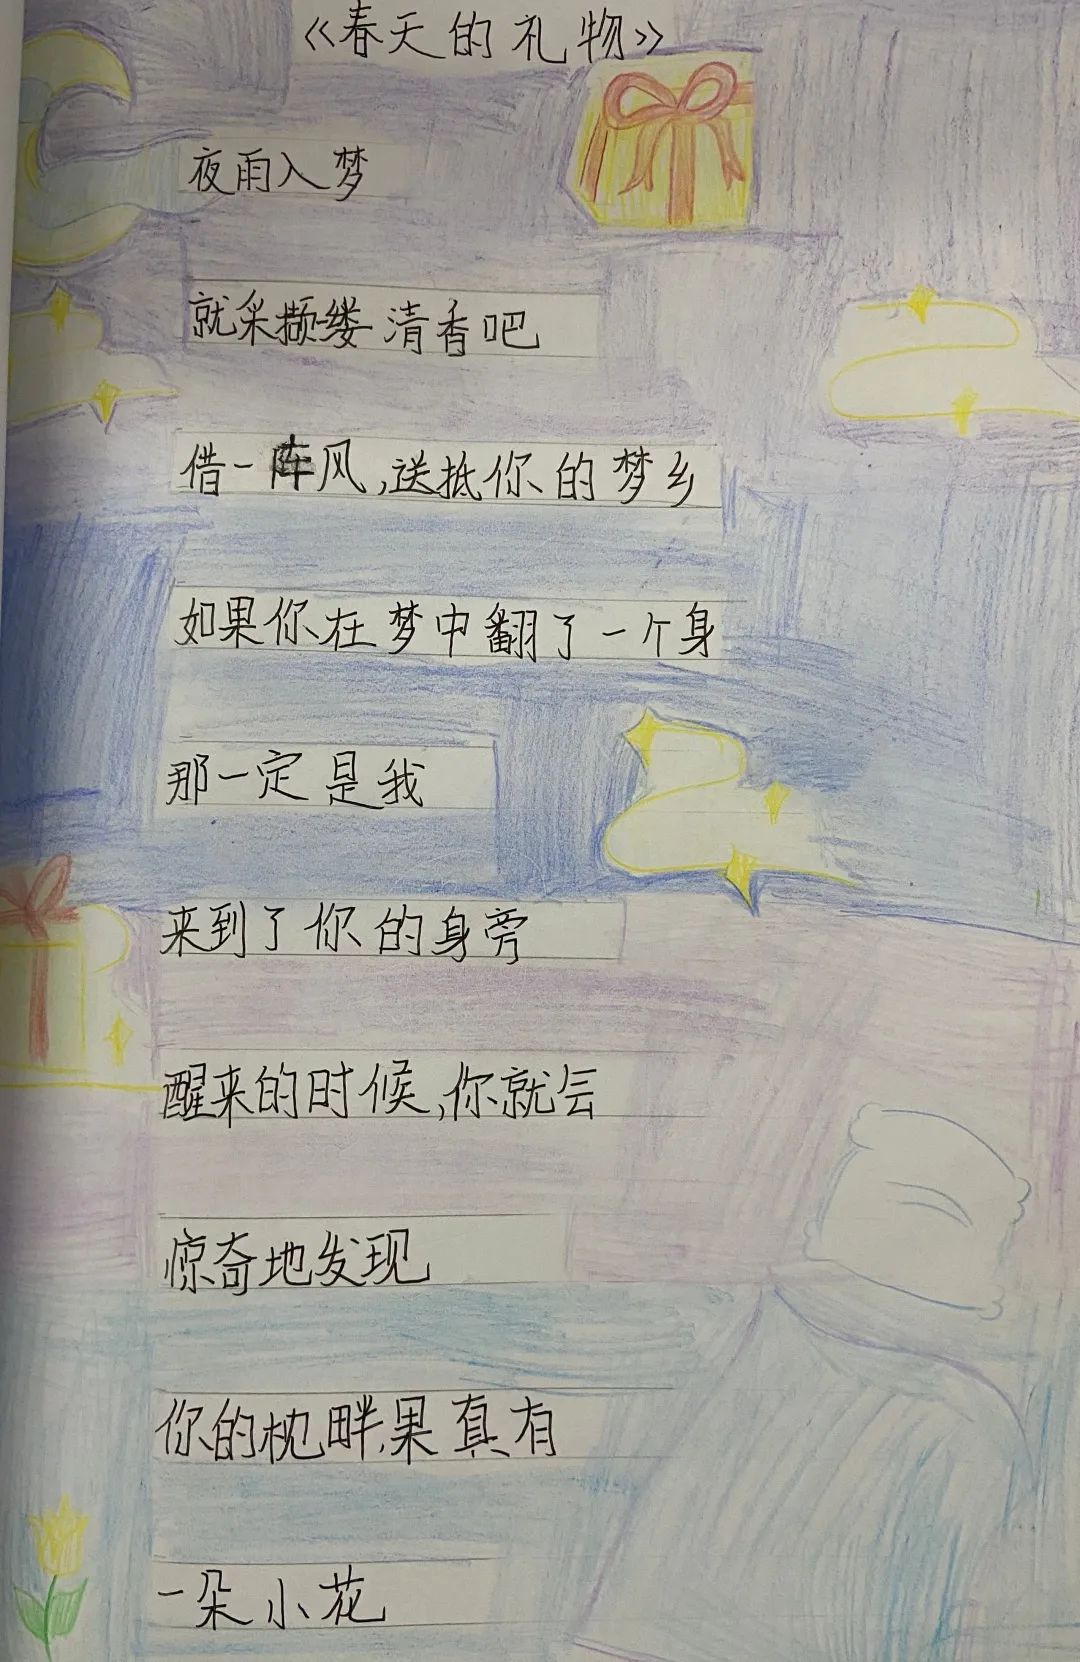 《春天的礼物》
夜雨入梦
就采撷缕清香吧
借一阵风,送抵你的梦乡
如果你在梦中翻了一个身
那一定是我
来到了你的身旁
醒来的时候,你就会
惊奇地发现
你的枕畔,果真有
一朵小花